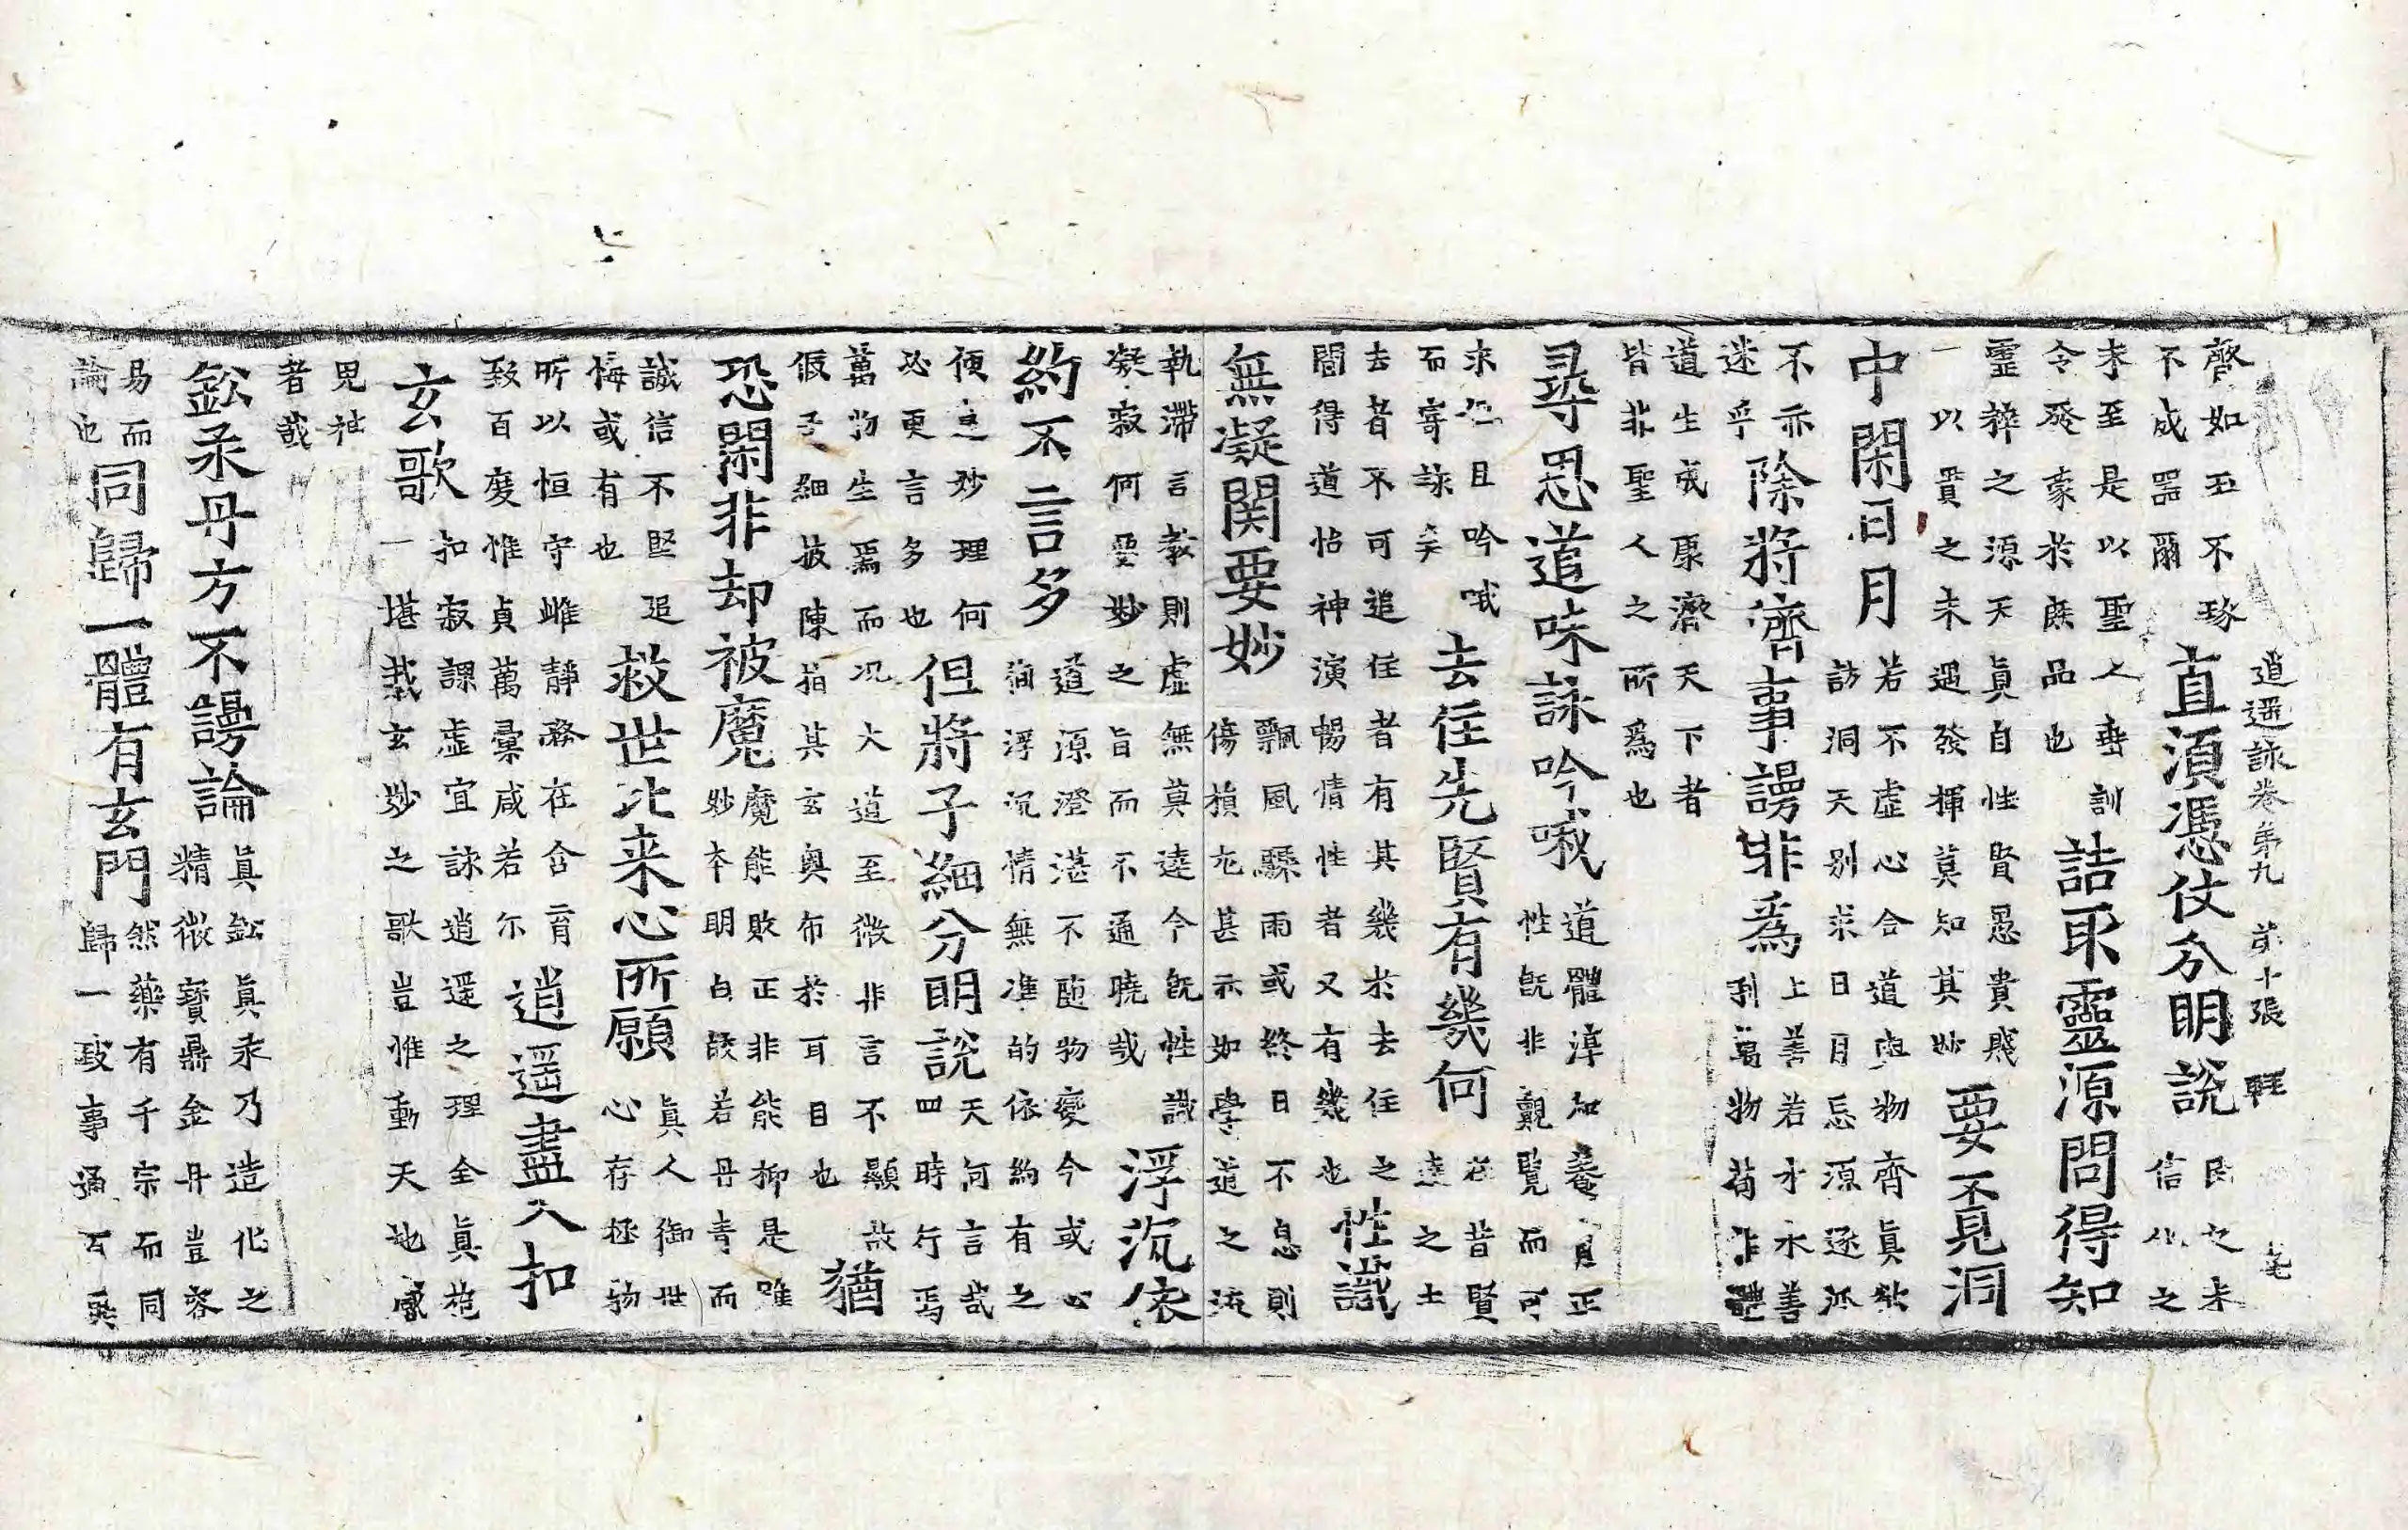 逍遥詠卷第九 第十張 軽
齊如玉不琢
不成器爾
直須憑仗分明說
民之未
信化之
未至是以聖人垂訓
令發蒙於庶品也
詰取靈源問得知
靈粹之源天真自性賢愚貴賤
一以貫之未遇發揮莫知其妙
要不見洞
中閑日月
若不虛心合道與物齊真欲
訪洞天别求日月忘源逐派
不亦
迷乎
除將濟事謾非爲
上善若水水善
利萬物苟非體
道生成康濟天下者
皆非聖人之所爲也
尋思道味詠吟哦
道體淳和養育正
性旣非觀覽而可
求但且吟哦
而寄詠矣
去住先賢有幾何
若昔賢
達之士
去者不可追住者有其幾於去住之
間得道怡神演暢情性者又有幾也
性識
無凝関要妙
飄風驟雨或終日不息則
傷損尤甚亦如學道之流
執滯言教則虛無莫達今旣性識
凝寂何要妙之旨而不通曉哉
浮沉依
約不言多
道源澄湛不随物變今或心
徇浮沉情無准的依約有之
便之妙理何
必更言多也
但將子細分明說
天何言哉
四時行焉
萬物生焉而况大道至微非言不顯故
假子細披陳指其玄奥布於耳目也
猶
恐閑非却被魔
魔能敗正非能抑是唯
妙本明白皎若丹青而
誠信不堅追
悔或有也
救世比来心所願
真人御世
心存拯物
所以恒守雌靜務在含育
致百度惟貞萬彙咸若尒
逍遥盡入扣
玄歌
扣寂課虛宜詠逍遥之理全真抱
一堪裁玄妙之歌豈惟動天地感
鬼神
者哉
鈆汞丹方不謾論
真鈆真汞乃造化之
精微寶鼎金丹豈容
易而
論也
同歸一體有玄門
然藥有千宗而同
歸一致事通